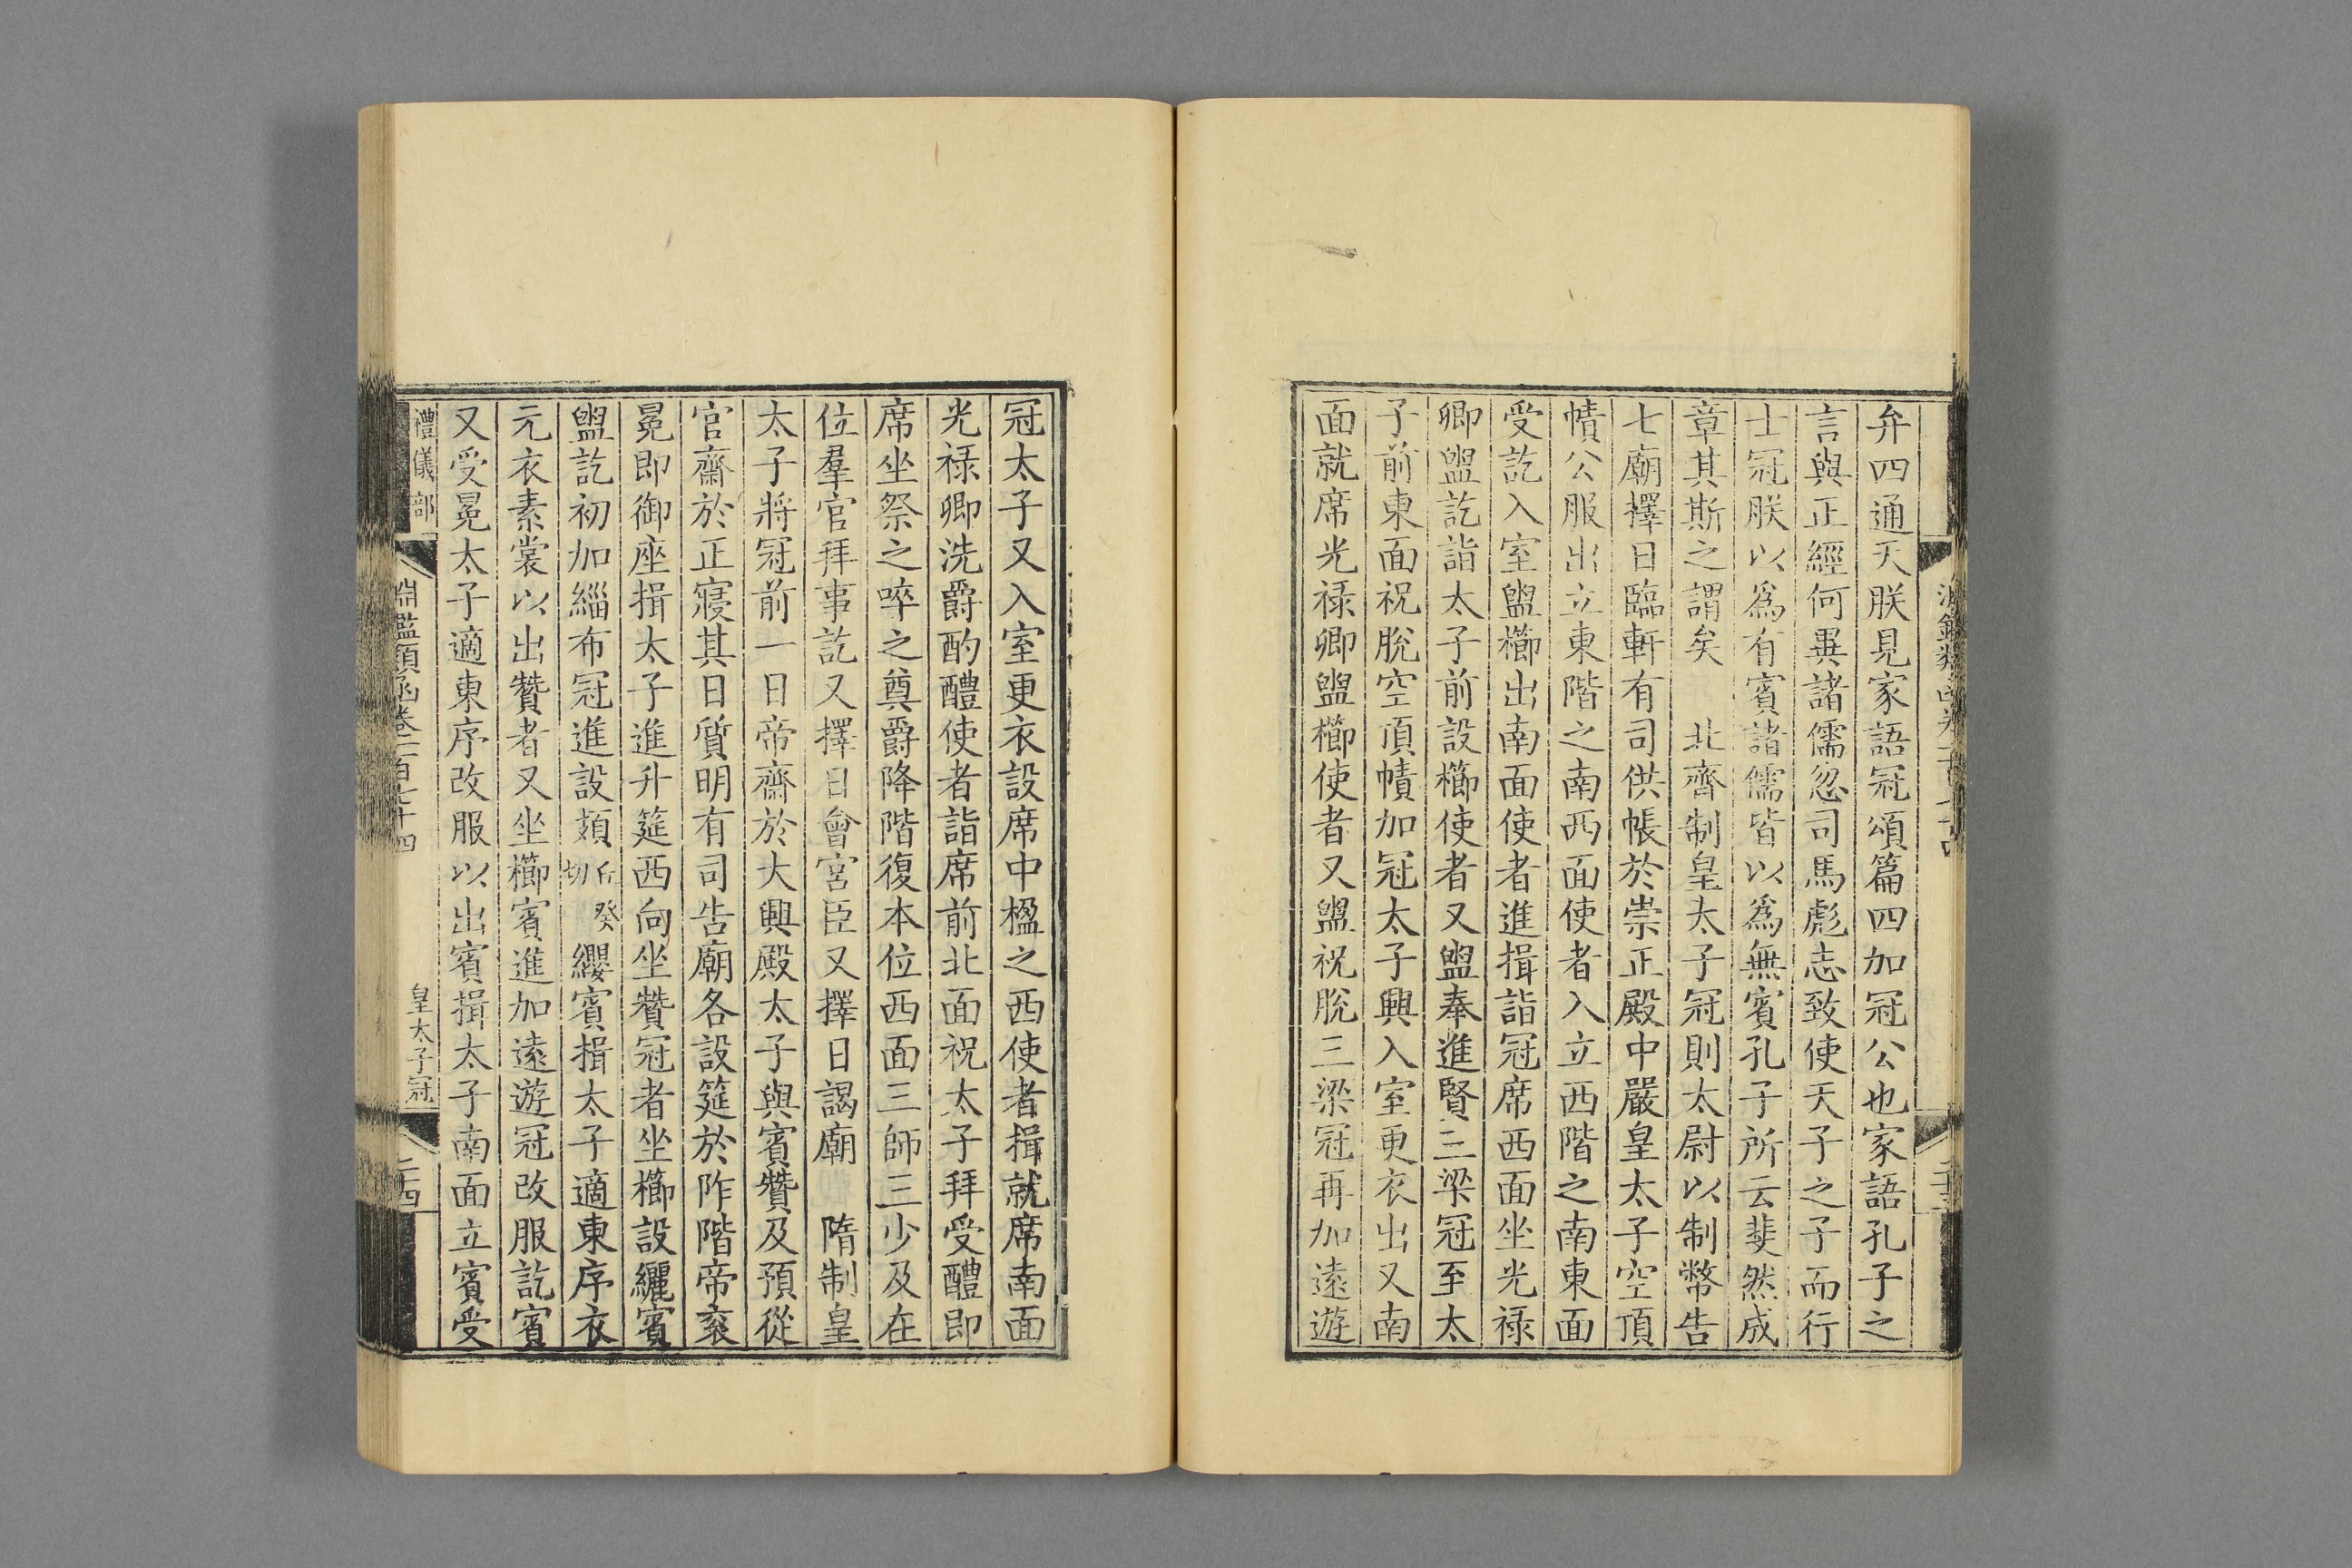 弁四通天朕見家語冠頌篇四加冠公也家語孔子之
言與正經何異諸儒忽司馬彪志致使天子之子而行
士冠朕以爲有賓諸儒皆以爲無賓孔子所云斐然成
章其斯之謂矣　北齊制皇太子冠則太尉以制幣告
七廟擇日臨軒有司供帳於崇正殿中嚴皇太子空頂
幘公服出立東階之南西面使者入立西階之南東面
受訖入室盥櫛出南面使者進揖詣冠席西面坐光禄
卿盥訖詣太子前設櫛使者又盥奉進賢三梁冠至太
子前東面祝脫空頂幘加冠太子興入室更衣出又南
面就席光禄卿盥櫛使者又盥祝脫三梁冠再加遠遊
冠太子又入室更衣設席中楹之西使者揖就席南面
光禄卿洗爵酌醴使者詣席前北面祝太子拜受醴即
席坐祭之啐之奠爵降階復本位西面三師三少及在
位羣官拜事訖又擇日會宮臣又擇日謁廟　隋制皇
太子將冠前一日帝齋於大興殿太子與賓贊及預從
官齋於正寢其日質明有司告廟各設筵於阼階帝衮
冕即御座揖太子進升筵西向坐贊冠者坐櫛設纚賓
盥訖初加緇布冠進設頍丘癸切纓賓揖太子適東序衣
元衣素裳以出贊者又坐櫛賓進加遠遊冠改服訖賓
又受冕太子適東序改服以出賓揖太子南面立賓受
禮儀部
淵鑑類函卷一百七十四
皇太子冠
二四